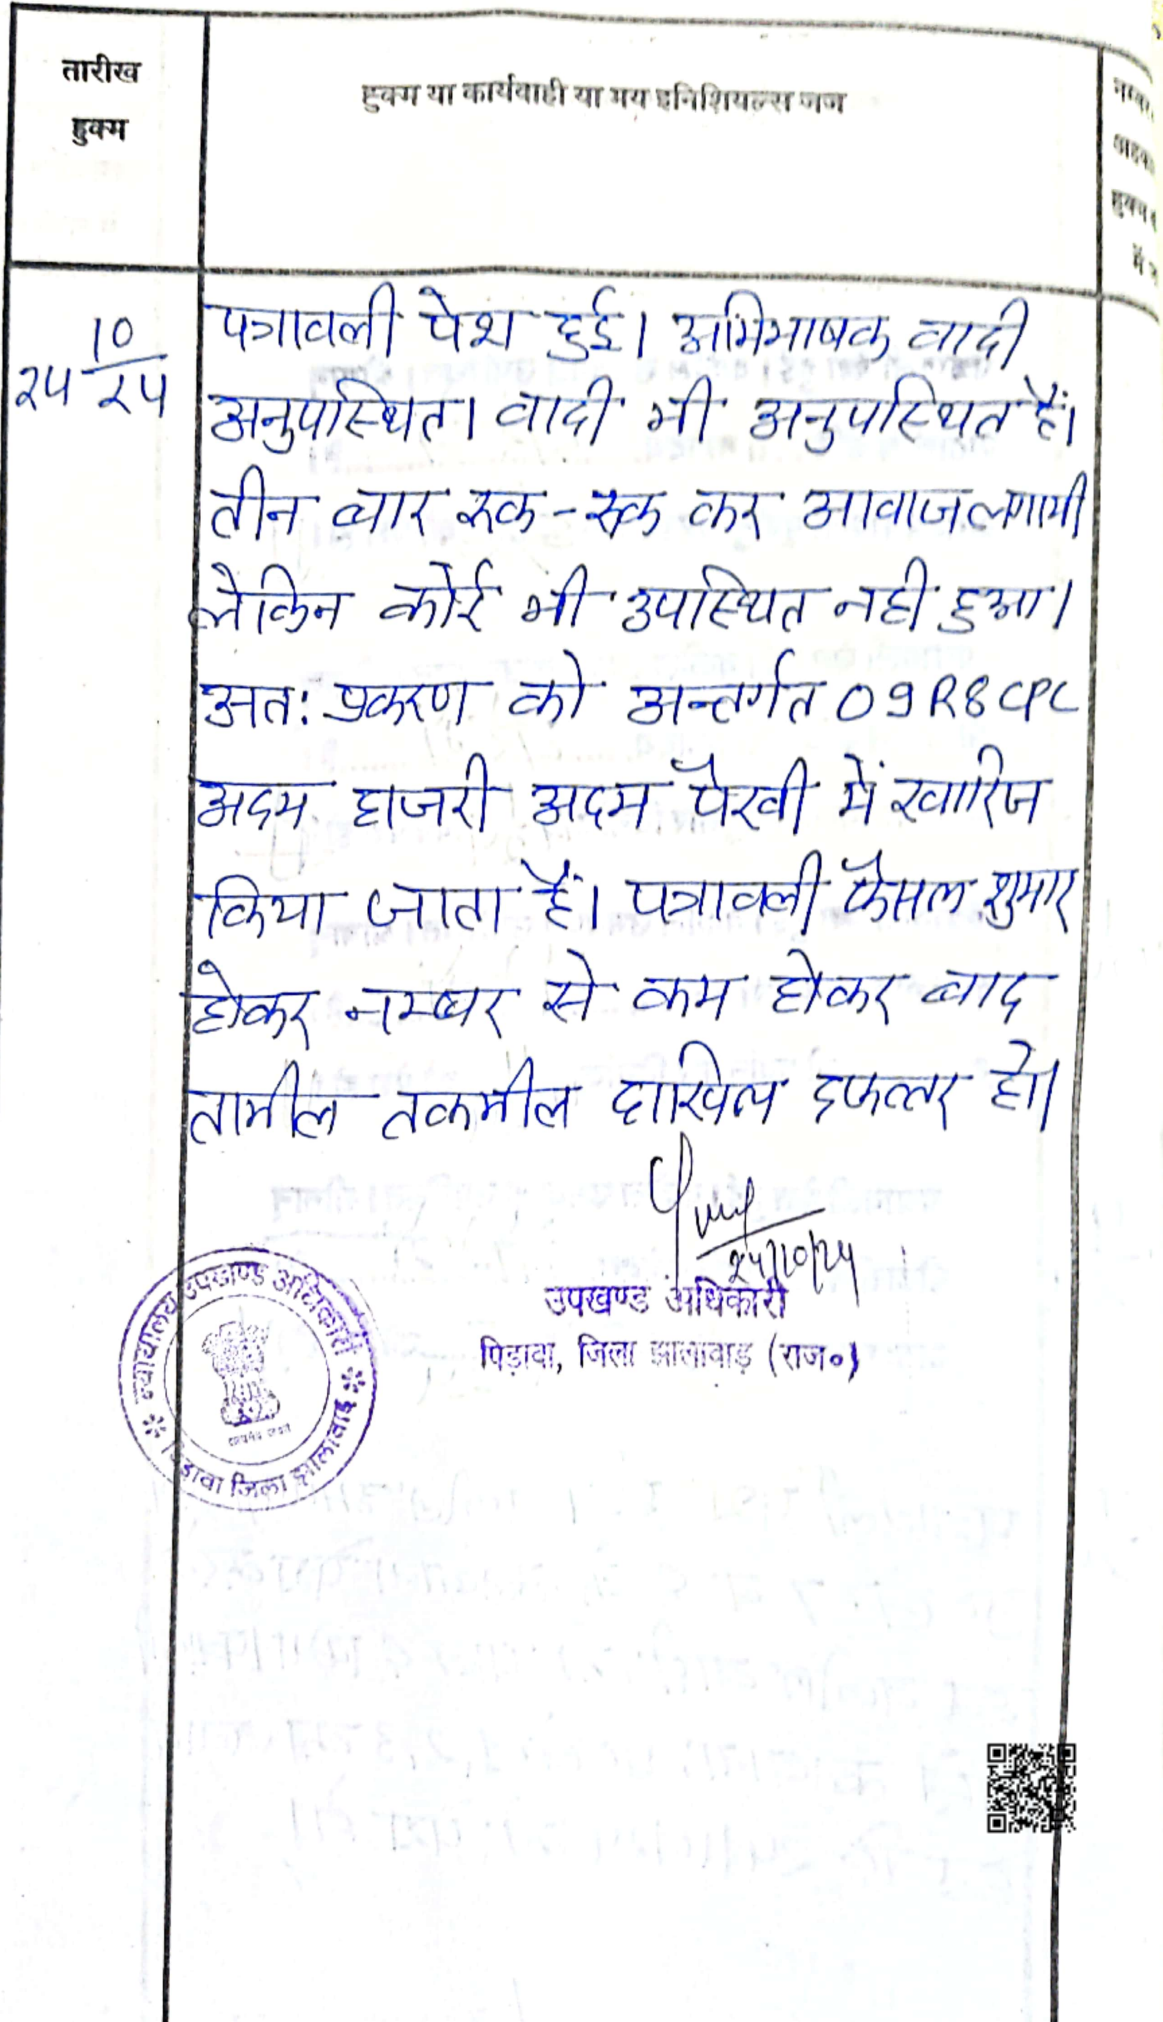 तारीख
हुक्म
हुक्म या कार्यवाही या मय इनिशियल्स जज
में
10
24 24
पत्रावली पेश हुई। अभिभाषक वादी
अनुपस्थित। वादी भी अनुपस्थित हैं।
तीन बार रूक-रूक कर आवाज लगायी
लेकिन कोई भी उपस्थित नही हुआ।
अत: प्रकरण को अन्तर्गत O9R8CPC
अदम हाजरी अदम पैरवी में खारिज
किया जाता हैं। पत्रावली फैसल शुमार
होकर नम्बर से कम होकर बाद
तामील तकमील दाखिल दफ्तर हो।
24/10/24
उपखण्ड अधिकारी
पिड़ावा, जिला झालावाड़ (राज०)
न्यायालय उपखण्ड अधिकारी
पिड़ावा जिला झालावाड़